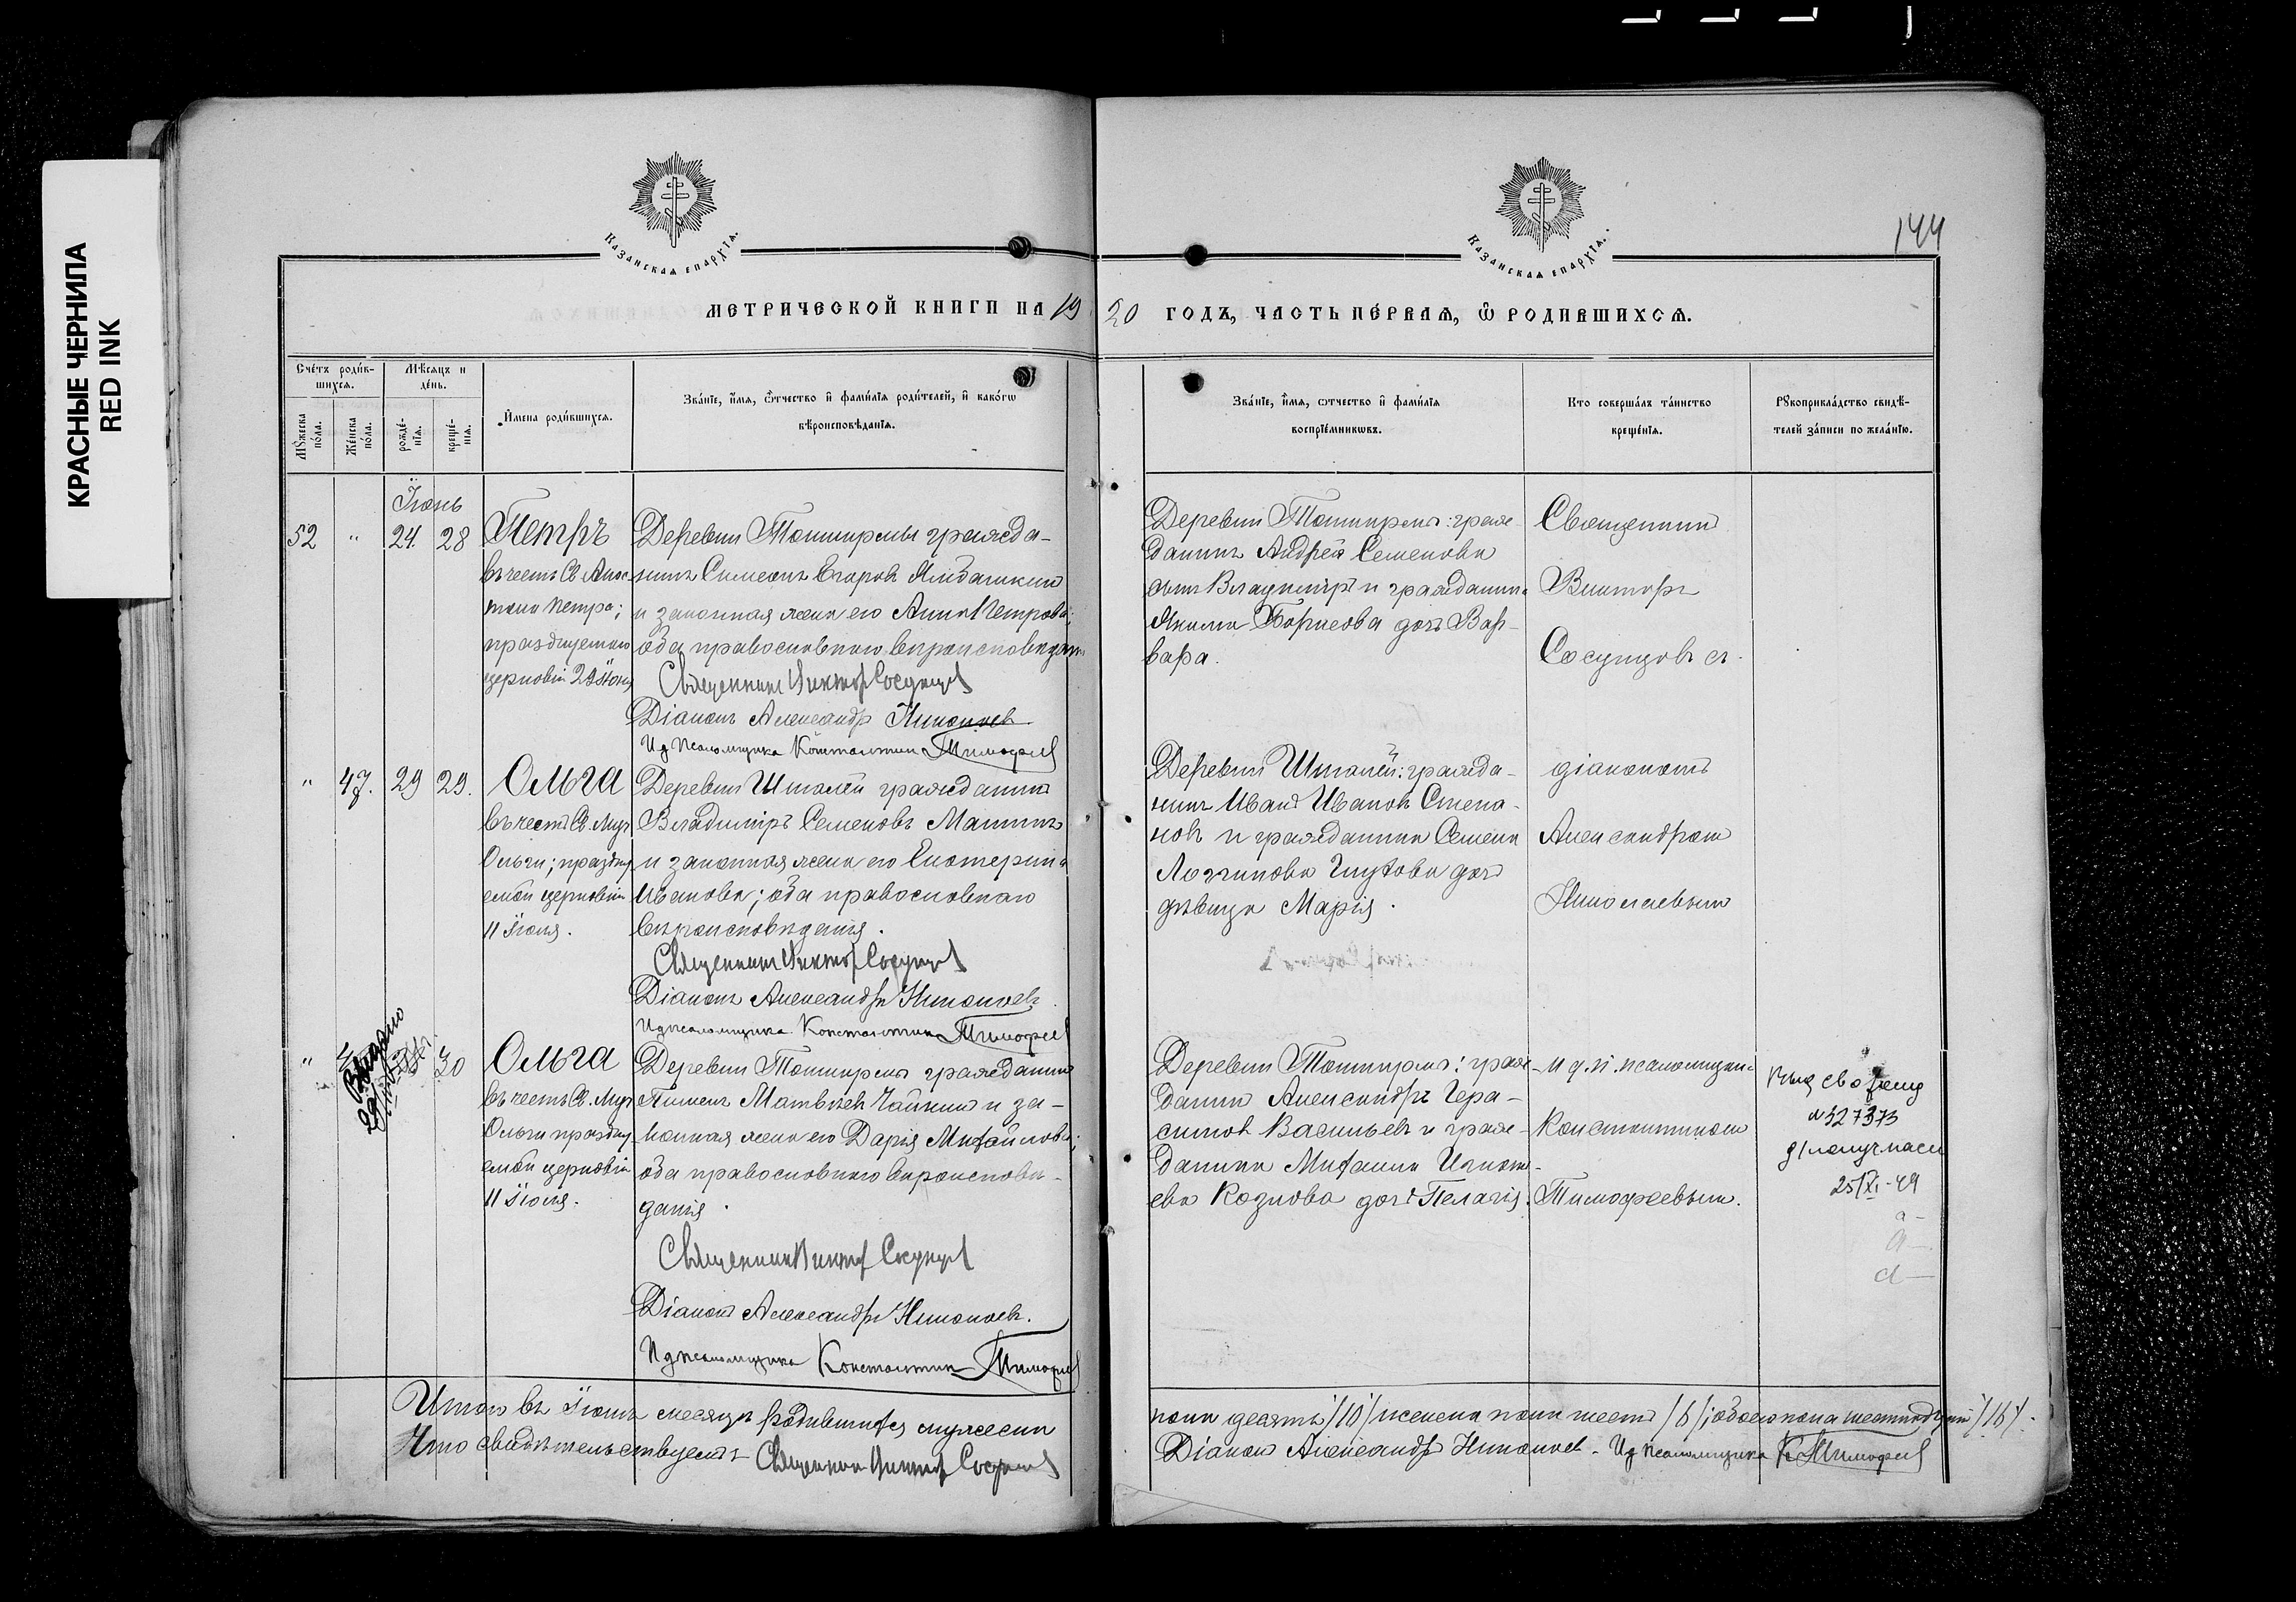 КРАСНЫЕ ЧЕРНИЛА
RED INK
Казанская епархїѧ.
Казанская епархїѧ.
144
МЕТРИЧЕСКОЙ КНИГИ НА 19
20 ГОДЪ, ЧАСТЬ ПЕ́РВАѦ, Ѽ РОДИВШИХСѦ.
Сче́тъ роди́в-
шихсѧ.
Мѣ́сѧцъ и
де́нь.
Мꙋ́жеска
по́ла.
Же́нска
по́ла.
рожде́-
нїѧ.
креще́-
нїѧ.
И҆мена̀ роди́вшихсѧ.
Зва́нїе, и҆́мѧ, ѻ҆́тчество и҆ фами́лїѧ роди́телей, и҆ како́гѡ
вѣроисповѣ́данїѧ.
Зва́нїе, и҆́мѧ, ѻ҆́тчество и҆ фами́лїѧ
воспрїе́мникѡвъ.
Кто̀ соверша́лъ та́инство
креще́нїѧ.
Рꙋкоприкла́дство свидѣ́-
телей за́писи по жела́нїю.
Їюнь
52 " 24. 28 Петръ
въ честь Св Апос-
тола Петра;
празднуемаго
церковію 29 Їюня
Деревни Ташкирмы гражда-
нинъ Симеонъ Егоровъ
и законная жена его Анна Петрова;
оба православнаго вѣроисповѣдан
Священникъ Виктор Сосунцов
Діаконъ Александр Николаев
Ид псаломщика Константин Тимофеев
Деревни Ташкирмы: граж-
данинъ Андрея Семенова
сынъ Владиміръ и гражданина
Акима Борисова дочь Вар-
вара.
Священник
Викторъ
Сосунцовъ съ
" 47. 29 29. Ольга
въ честь Св. Муч
Ольги; праздну
емой церковію
11 Їюля.
Деревни Шталей гражданин
Владиміръ Семеновъ Машинъ
и законная жена его Екатерина
Иванова; оба православнаго
вѣроисповѣданія.
Священник Виктор Сосунцов
Діаконъ Александръ Николаевъ.
Ид псаломщика Константин Тимофеев
Деревни Шталей: гражда-
нинъ Иванъ Ивановъ Степа-
новъ и гражданина Семена
Логинова дочь
дѣвица Марія.
діакономъ
Александром
Николаевым
" 30 Ольга
Выдано
въ честь Св. Муч
Ольги праздну
емой церковію
11 Їюля.
Деревни Ташкирмы гражданин
Пимен Матвѣев Чайкин и за-
конная жена его Дарія Михайлова;
оба православнаго вѣроисповѣ-
данія.
Священник Виктор Сосунцов
Діакон Александръ Николаевъ.
Ид псаломщика Константин Тимофеев
Деревни Ташкирмы: граж-
данин Александръ Гера-
симов Васильевъ и граж-
данина Михаила Игнать-
ева Козлова дочь Пелагія.
и д. п. псаломщика
Константином
Тимофеевым.
№ 327373
25/XI-49
Итого въ Їюнѣ месяцѣ родившихся мужеска
пола десять /10/ женска пола шесть /6/; обоего пола шестнадцать /16/.
Что свидѣтельствуемъ Священник Виктор Сосунцов
Діакон Александръ Николаев. Ид псаломщика К Тимофеев